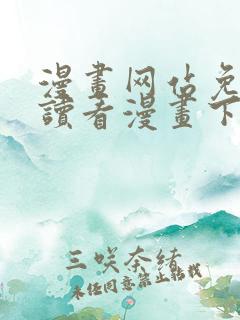 漫畫网估免
讀者漫畫下
三咲奈緒
未经同意禁止转载